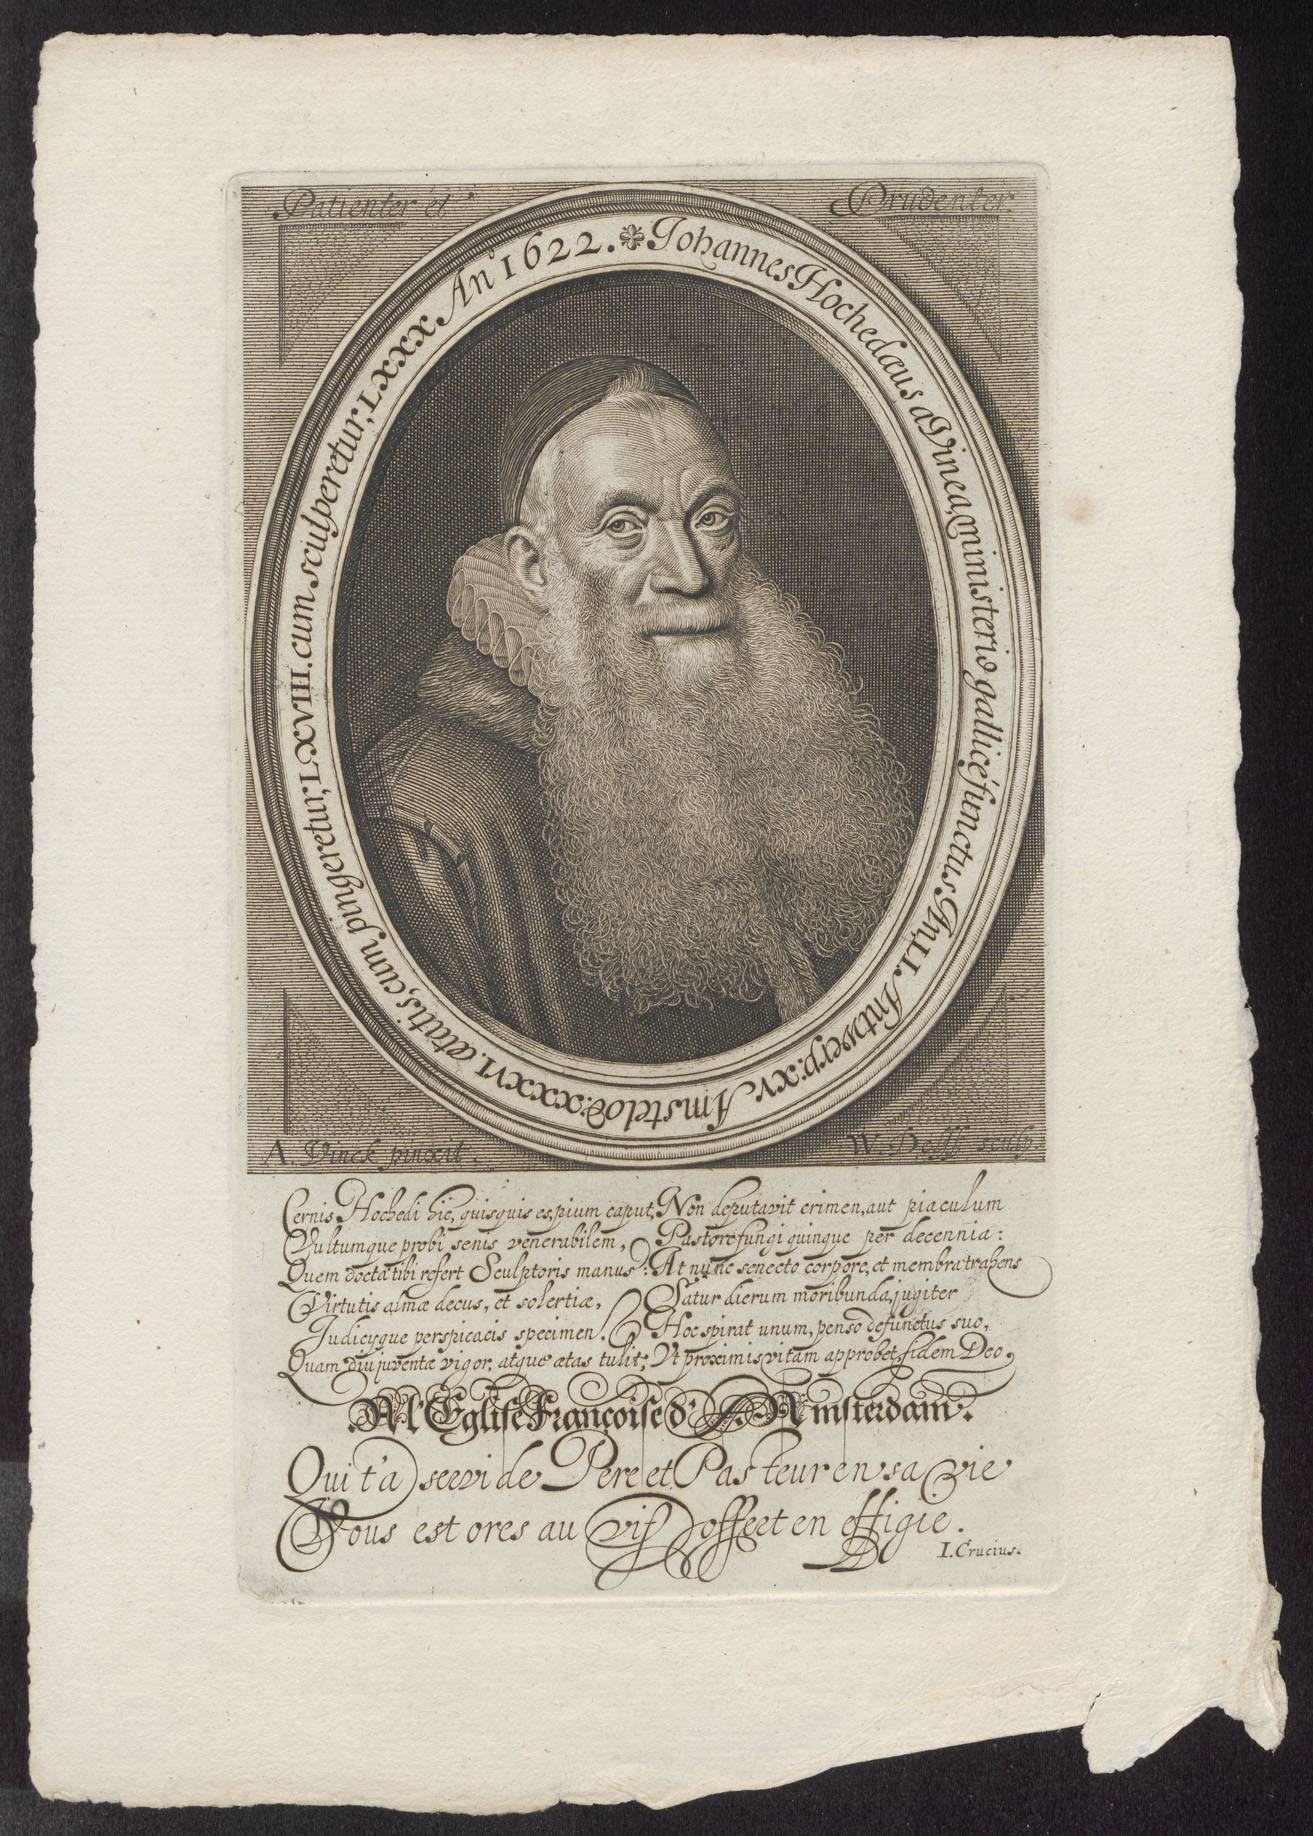 Patienter et
Prudenter.
Johannes Hochedæus a Vinea, ministerio gallicé functus An. LI. Antwerp: XV. Amstelod: XXXVI. ætatis, cum pingeretur, LXVIII. cum sculperetur, LXXX. An.º 1622.
A. Vinck pinxit.
W. Delff sculp
Cernis Hochedi hic, quisquis es, pium caput,
Vultumque probi senis venerabilem,
Quem docta tibi refert Sculptoris manus:
Virtutis almæ decus, et solertiæ,
Judicijque perspicacis specimen!
Quam diu juventæ vigor, atque ætas tulit;
Non deputavit crimen, aut piaculum
Pastore fungi quinque per decennia:
At nunc senecto corpore, et membra trahens
Satur dierum moribunda, jugiter
Hoc spirat unum, penso defunctus suo,
Vt proximis vitam approbet, fidem Deo.
A l'Eglise Françoise d'Amsterdam.
Qui t'a servi de Pere et Pasteur en sa vie
Vous est ores au vif offert en effigie.
I. Crucius.